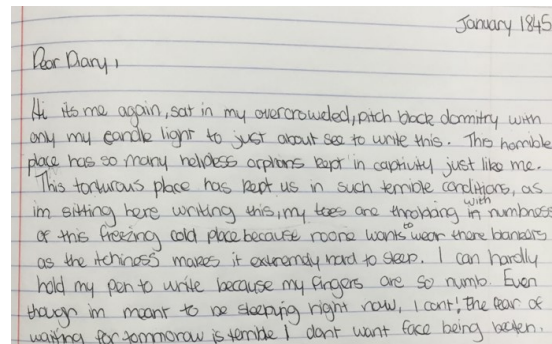 January 1845
Dear Diary,
Hi its me again, sat in my overcrowded, pitch black dormitry with
only my candle light to just about see to write this. This horrible
place has so many helpless orphans kept in captivity just like me.
This torturous place has kept us in such terrible conditions, as
im sitting here writing this, my toes are throbbing in with numbness
of this freezing cold place because noone wants to wear there blankets
as the itchiness makes it extremely hard to sleep. I can hardly
hold my pen to write because my fingers are so numb. Even
though im meant to be sleeping right now, I cant! The fear of
waiting for tommorow is terrible I dont want face being beaten.